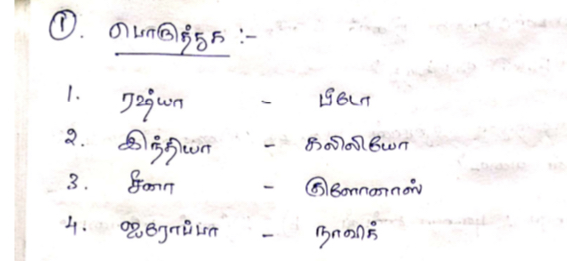 ①. பொருத்துக :-
1. ரஷ்யா - பீடோ
2. இந்தியா - கலிலியோ
3. சீனா - குளோனாஸ்
4. ஐரோப்பா - நாவிக்